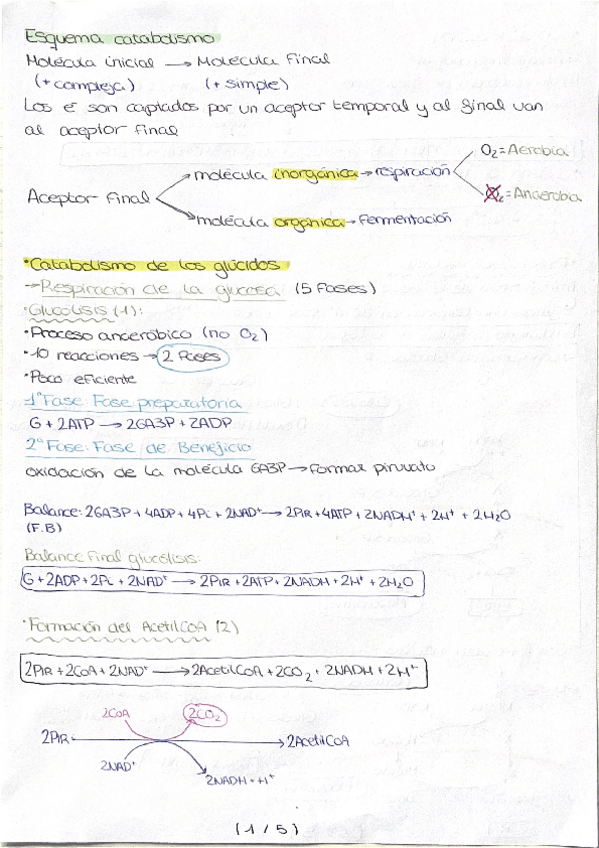 Esquema catabolismo
Molécula inicial → Molécula Final
(+ compleja) (+ simple)
Los e⁻ son captados por un aceptor temporal y al final van
al aceptor final
Aceptor final
molécula inorgánica → respiración
O₂ = Aerobia
O₂ = Anaerobia
molécula orgánica → Fermentación
·Catabolismo de los glúcidos
→ Respiración de la glucosa (5 fases)
·Glucólisis (1):
·Proceso anaeróbico (no O₂)
·10 reacciones → 2 Fases
·Poco eficiente
1ª Fase: Fase preparatoria
G + 2ATP → 2GA3P + 2ADP
2ª Fase: Fase de Beneficio
oxidación de la molécula GA3P → formar piruvato
Balance: 2GA3P + 4ADP + 4Pi + 2NAD⁺ → 2PIR + 4ATP + 2NADH⁺ + 2H⁺ + 2H₂O
(F.B)
Balance final glucólisis:
G + 2ADP + 2Pi + 2NAD⁺ → 2PIR + 2ATP + 2NADH + 2H⁺ + 2H₂O
·Formación del AcetilCoA (2)
2PIR + 2CoA + 2NAD⁺ → 2AcetilCoA + 2CO₂ + 2NADH + 2H⁺
2CoA 2CO₂
2PIR 2AcetilCoA
2NAD⁺ 2NADH + H⁺
(1/5)